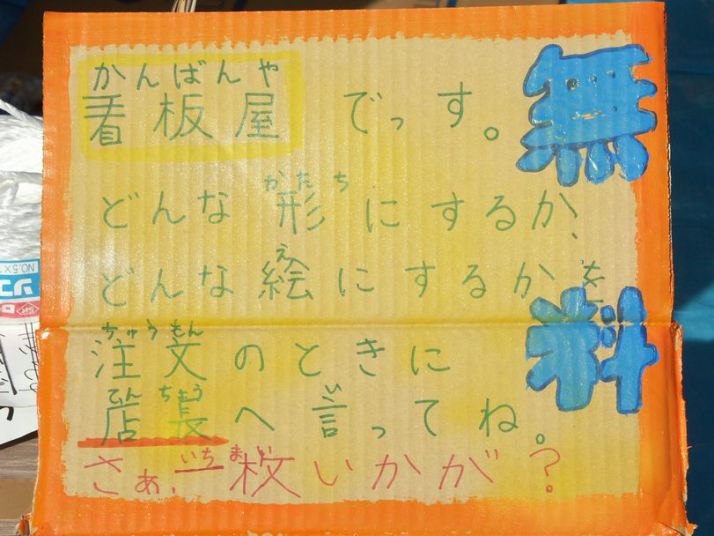 かんばんや
看板屋 でっす。
無料
かたち
どんな形にするか、
え
どんな絵にするかを
ちゅうもん
注文のときに
てんちょう い
店長へ言ってね。
いちまい
さぁ、一枚いかが？